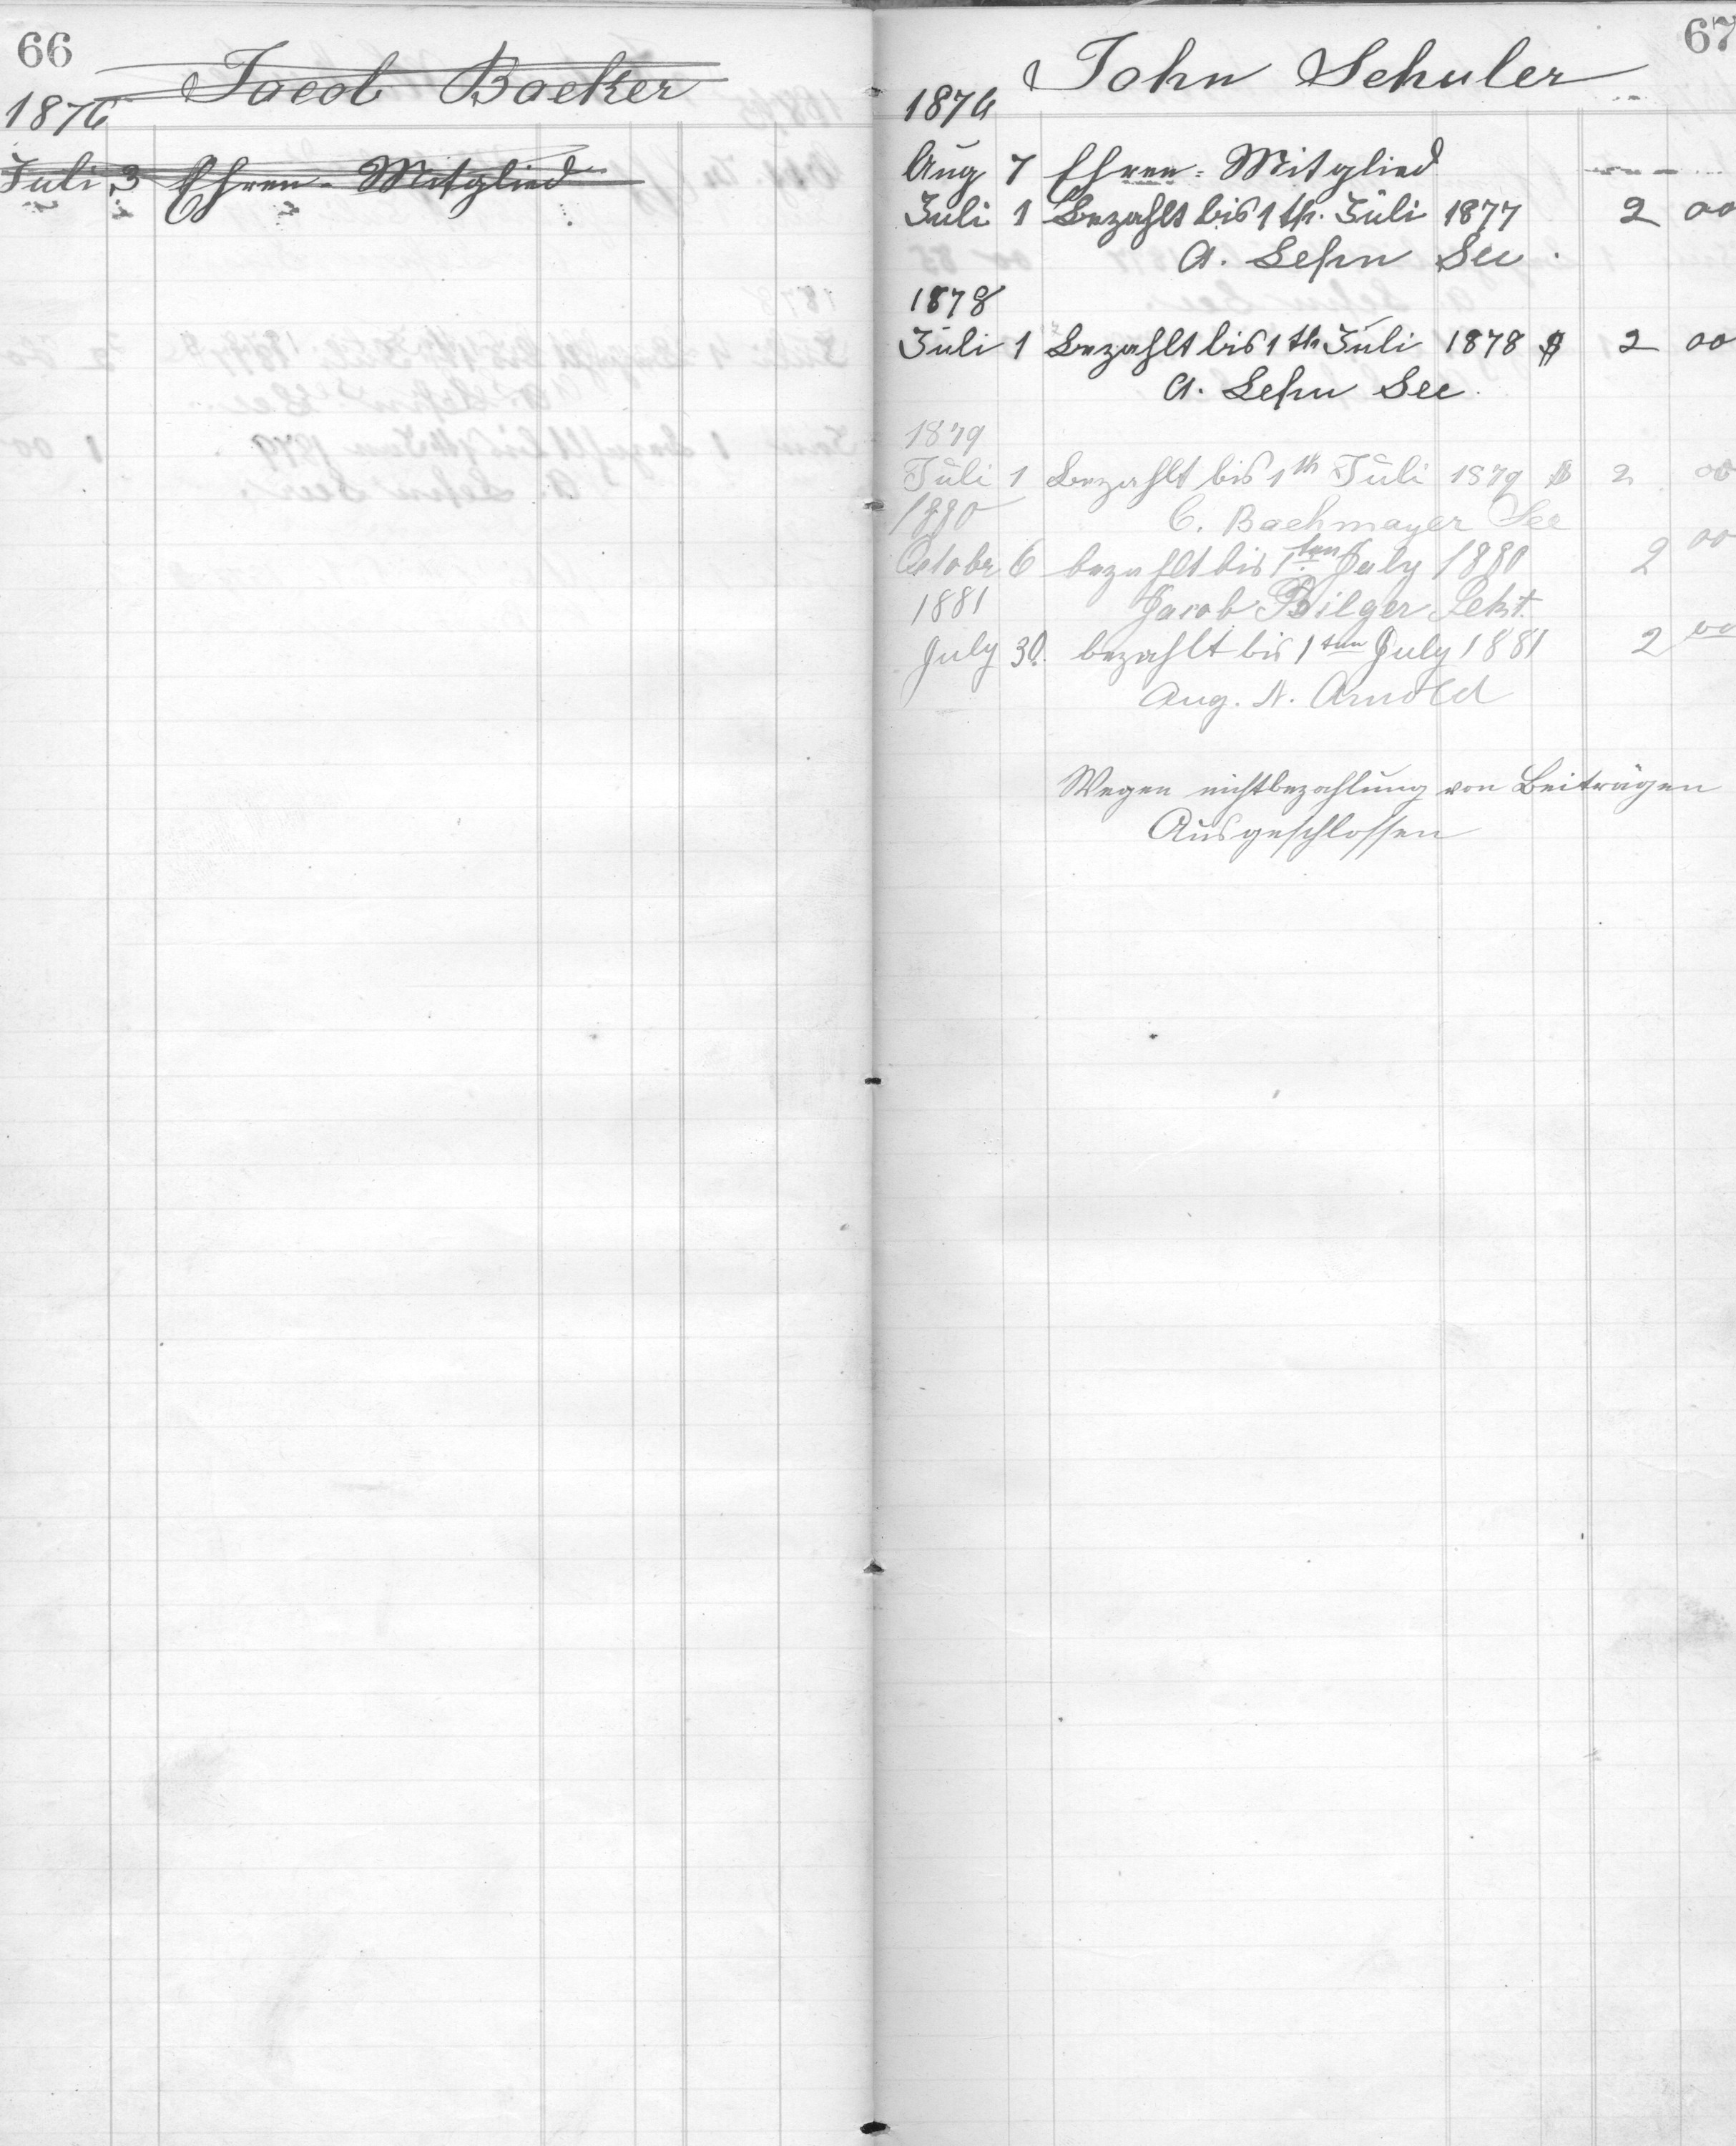 66
Jacob Backer
1876
Juli 3 Ehren-Mitglied
67
John Schuler
1876
Aug 7 Ehren-Mitglied
Juli 1 Bezahlt bis 1 th. Juli 1877 2 00
A. Lehn Sec.
1878
Juli 1 Bezahlt bis 1 th Juli 1878 $ 2 00
A. Lehn Sec.
1879
Juli 1 Bezahlt bis 1th Juli 1879 $ 2 00
C. Bachmayer Sec
1880
Octobr 6 bezahlt bis 1ten July 1880 2 00
Jacob Bilger Sekt.
1881
July 30. bezahlt bis 1ten July 1881 2 00
Aug. N. Arnold
Wegen nichtbezahlung von Beiträgen
Ausgeschlossen